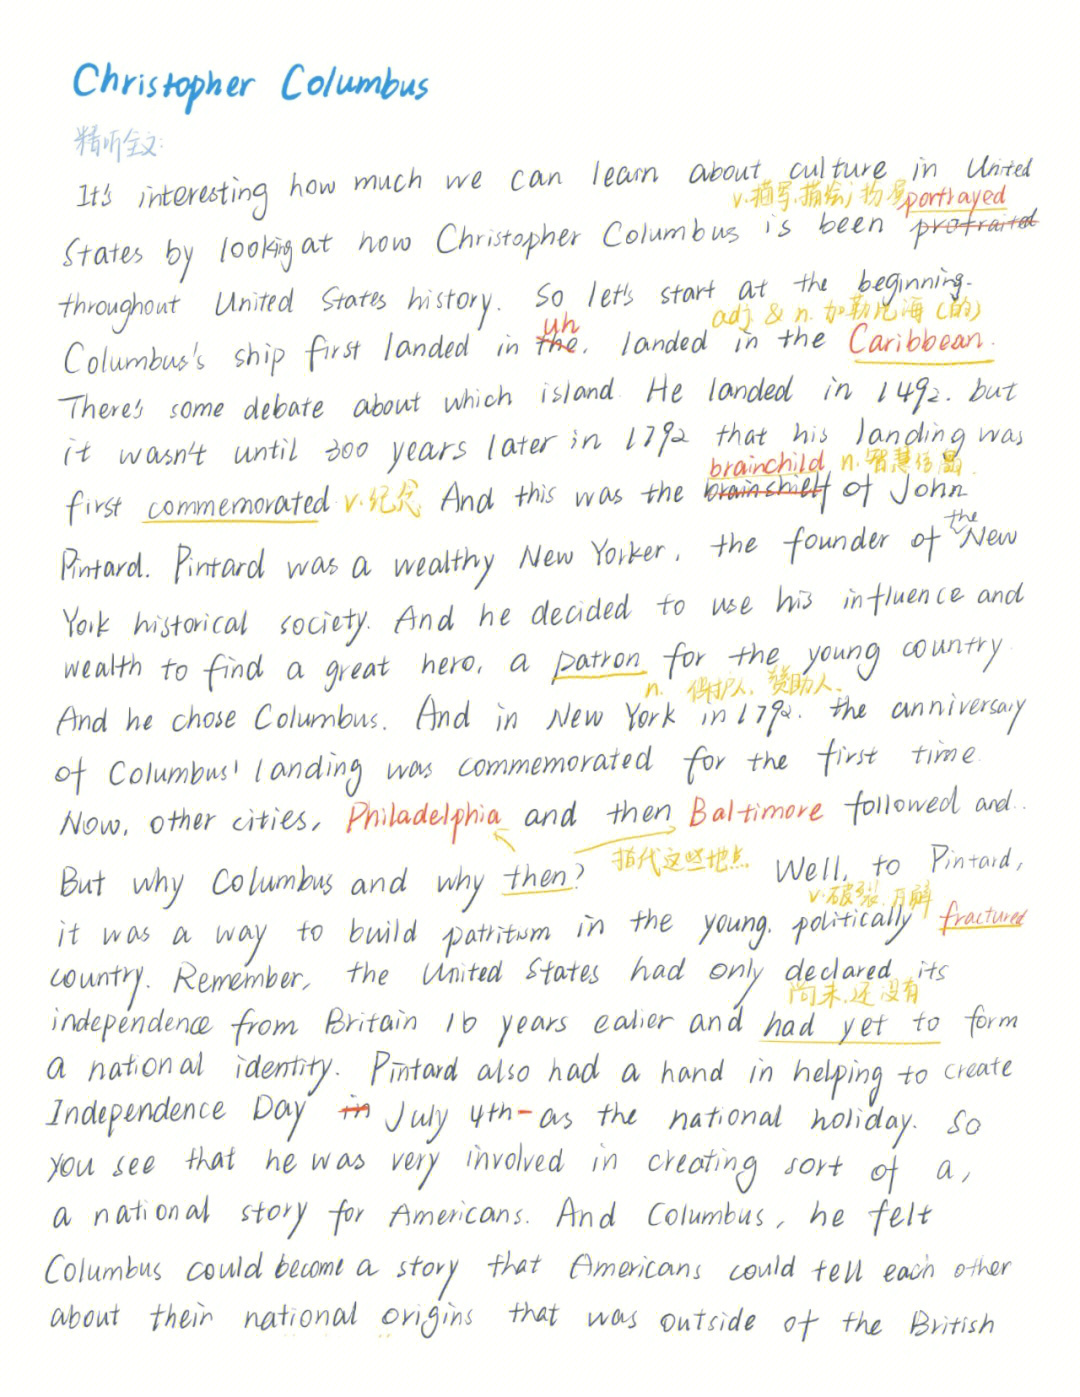 Christopher Columbus
精听全文:
It's interesting how much we can learn about culture in United
v.描写,描绘; 扮演 portrayed
States by looking at how Christopher Columbus is been protraited
throughout United States history. So let's start at the beginning.
uh adj & n. 加勒比海(的)
Columbus's ship first landed in the, landed in the Caribbean.
There's some debate about which island. He landed in 1492. but
it wasn't until 300 years later in 1792 that his landing was
brainchild n.智慧结晶
first commemorated v.纪念 And this was the brainshielf of John
the
Pintard. Pintard was a wealthy New Yorker, the founder of New
York historical society. And he decided to use his influence and
wealth to find a great hero, a patron for the young country.
n. 保护人, 赞助人.
And he chose Columbus. And in New York in 1792. the anniversary
of Columbus' landing was commemorated for the first time.
Now, other cities, Philadelphia and then Baltimore followed and..
指代这些地点
But why Columbus and why then? Well, to Pintard,
v.破裂,
it was a way to build patritism in the young, politically fractured
country. Remember, the United States had only declared its
尚未,还没有
independence from Britain 16 years ealier and had yet to form
a national identity. Pintard also had a hand in helping to create
Independence Day in July 4th - as the national holiday. So
you see that he was very involved in creating sort of a,
a national story for Americans. And Columbus, he felt
Columbus could become a story that Americans could tell each other
about their national origins that was outside of the British